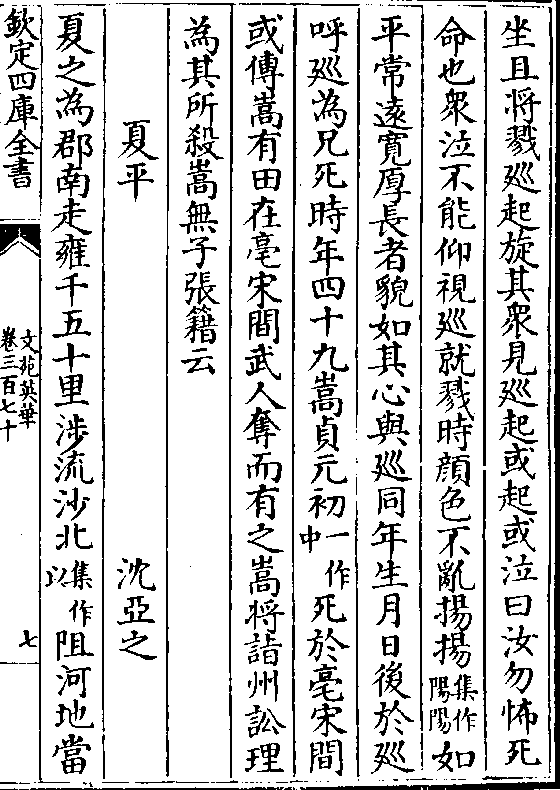 坐且將戮廵起旋其衆見廵起或起或泣曰汝勿怖死
命也衆泣不能仰視廵就戮時顔色不亂揚揚集作陽陽如
平常遠寛厚長者貌如其心與廵同年生月日後於廵
呼廵為兄死時年四十九嵩貞元初一作中死於亳宋間
或傳嵩有田在亳宋間武人奪而有之嵩将詣州訟理
為其所殺嵩無子張籍云
夏平 沈亞之
夏之為郡南走雍千五十里涉流沙北集作以阻河地當
欽定四庫全書 文苑英華 卷三百七十 七